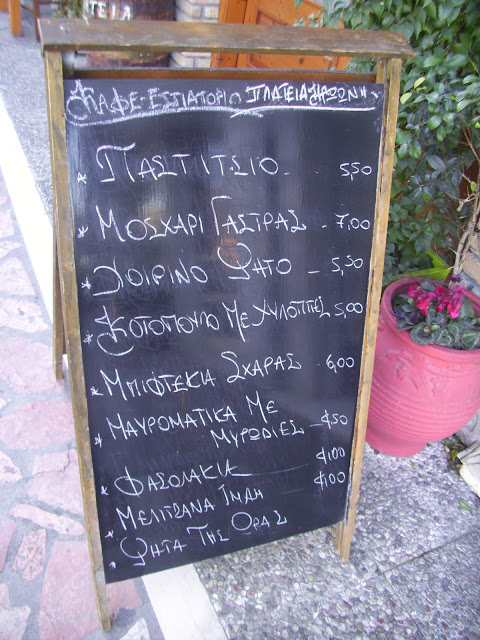 ΚΑΦΕ-ΕΣΤΙΑΤΟΡΙΟ ΠΛΑΤΕΙΑ
ΠΑΣΤΙΤΣΙΟ - 5,50
ΜΟΣΧΑΡΙ ΓΑΣΤΡΑΣ - 7,00
ΧΟΙΡΙΝΟ ΨΑΤΟ - 5,50
ΚΟΤΟΠΟΥΛΟ ΜΕ ΧΥΛΟΠΙΤΕΣ 5,00
ΜΠΙΦΤΕΚΙΑ ΣΧΑΡΑΣ - 6,00
ΜΑΥΡΟΜΑΤΙΚΑ ΜΕ
ΜΥΡΩΔΙΕΣ - 4,50
ΦΑΣΟΛΑΚΙΑ 4,00
ΜΕΛΙΤΖΑΝΑ ΙΜΑΜ 4,00
ΨΗΤΑ ΤΗΣ ΩΡΑΣ